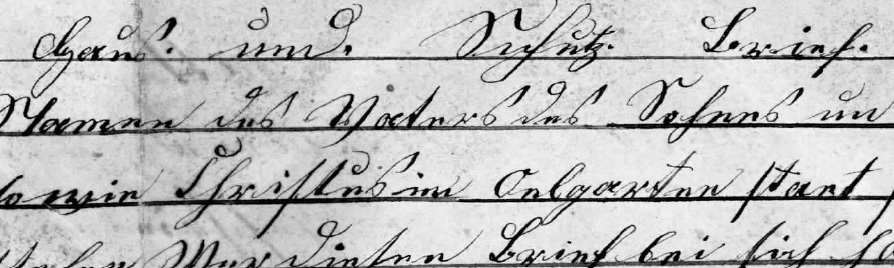 Haus. und. Schutz. Brief.
Namen des Vaters des Sohnes un
so wie Christus im Oelgarten staet
Wer diesen Brief bei sich